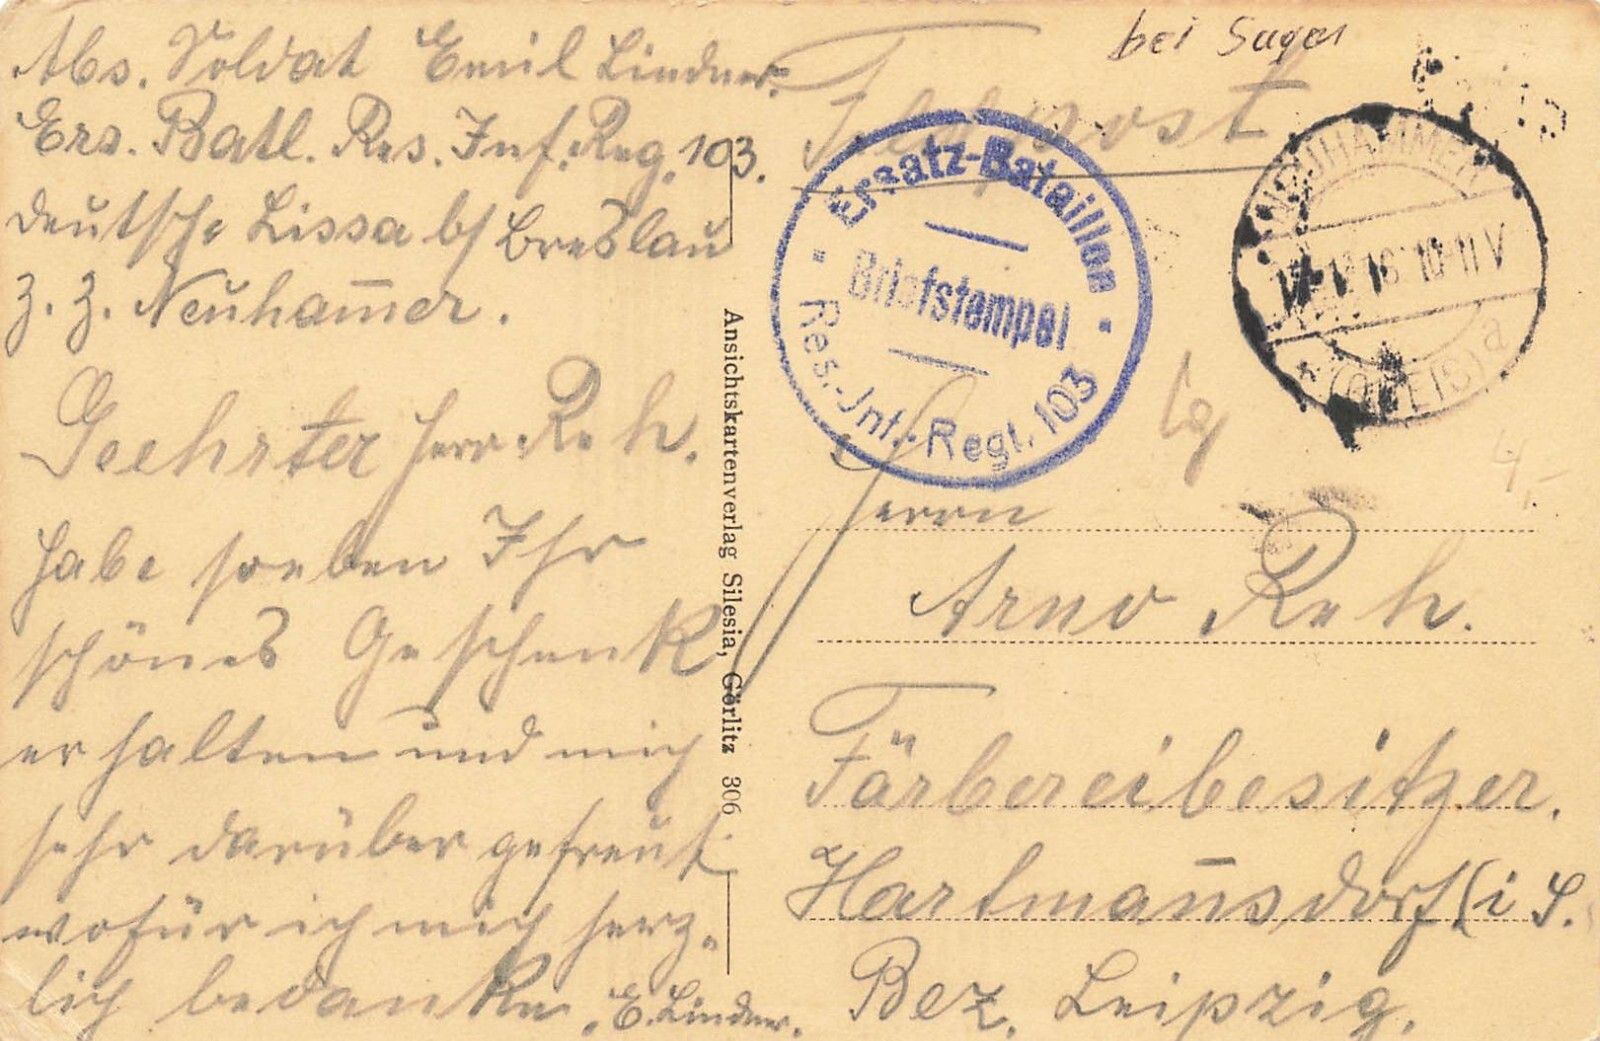 Abs. Soldat Emil Lindner.
Ers. Batl. Res. Inf. Reg. 103.
deutsche Lissa b/ Breslau
z. Z. Neuham̅er.
Geehrter Herr Reh.
habe soeben Ihr
schönes Geschenk
erhalten und mich
sehr darüber gefreut
wofür ich mich herz-
lich bedanke. E. Lindner.
Ansichtskartenverlag Silesia, Görlitz 306
bei Sagan
Feldpost
Ersatz-Bataillon
Briefstempel
Res.-Inf.-Regt. 103
NEUHAMMER
16 10-11 V
(QUEIS) a
4,-
Herrn
Arno Reh.
Färbereibesitzer.
Hartman̅sdorf (i S.
Bez. Leipzig.